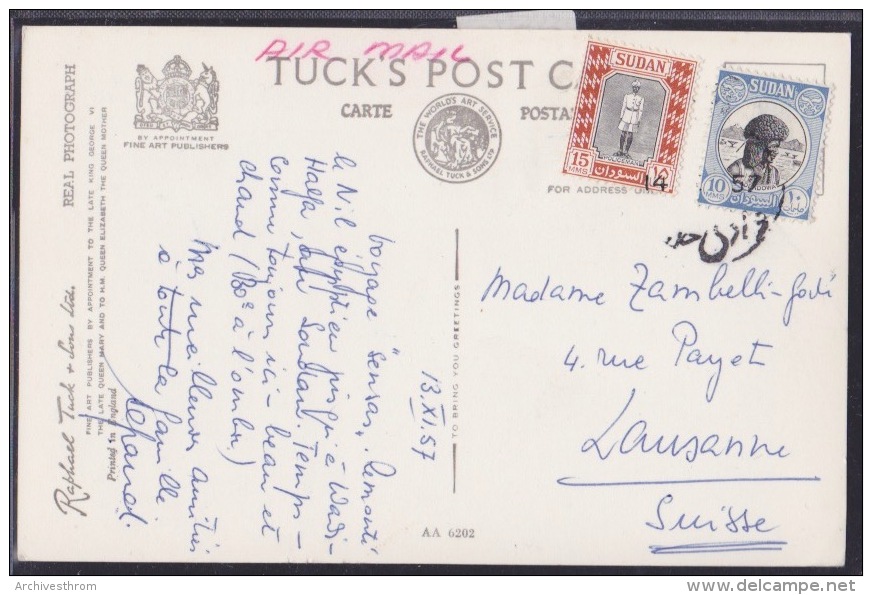 AIR MAIL
TUCK'S POST CA
CARTE POSTA
BY APPOINTMENT
FINE ART PUBLISHERS
THE WORLD'S ART SERVICE
RAPHAEL TUCK & SONS LTD
FOR ADDRESS ONLY
SUDAN
POLICEMAN
15
MMS
السودان
SUDAN
HADDOWA
10
MMS
السودان
١٠
مليمات
14
57
وادى حلفا
13.XI.57
Voyage "sensas". Remonté
le Nil égyptien jusqu'à Wadi-
Halfa, Soudan. Temps
comme toujours ici - beau et
chaud (30° à l'ombre)
Mes meilleures amitiés
à toute la famille
Madame Zambelli-
4. rue Payet
Lausanne
Suisse
TO BRING YOU GREETINGS
AA 6202
REAL PHOTOGRAPH
Raphael Tuck & Sons Ltd.
FINE ART PUBLISHERS BY APPOINTMENT TO THE LATE KING GEORGE VI
THE LATE QUEEN MARY AND TO H.M. QUEEN ELIZABETH THE QUEEN MOTHER
Printed in England
Archivesthrom
delcampe.net